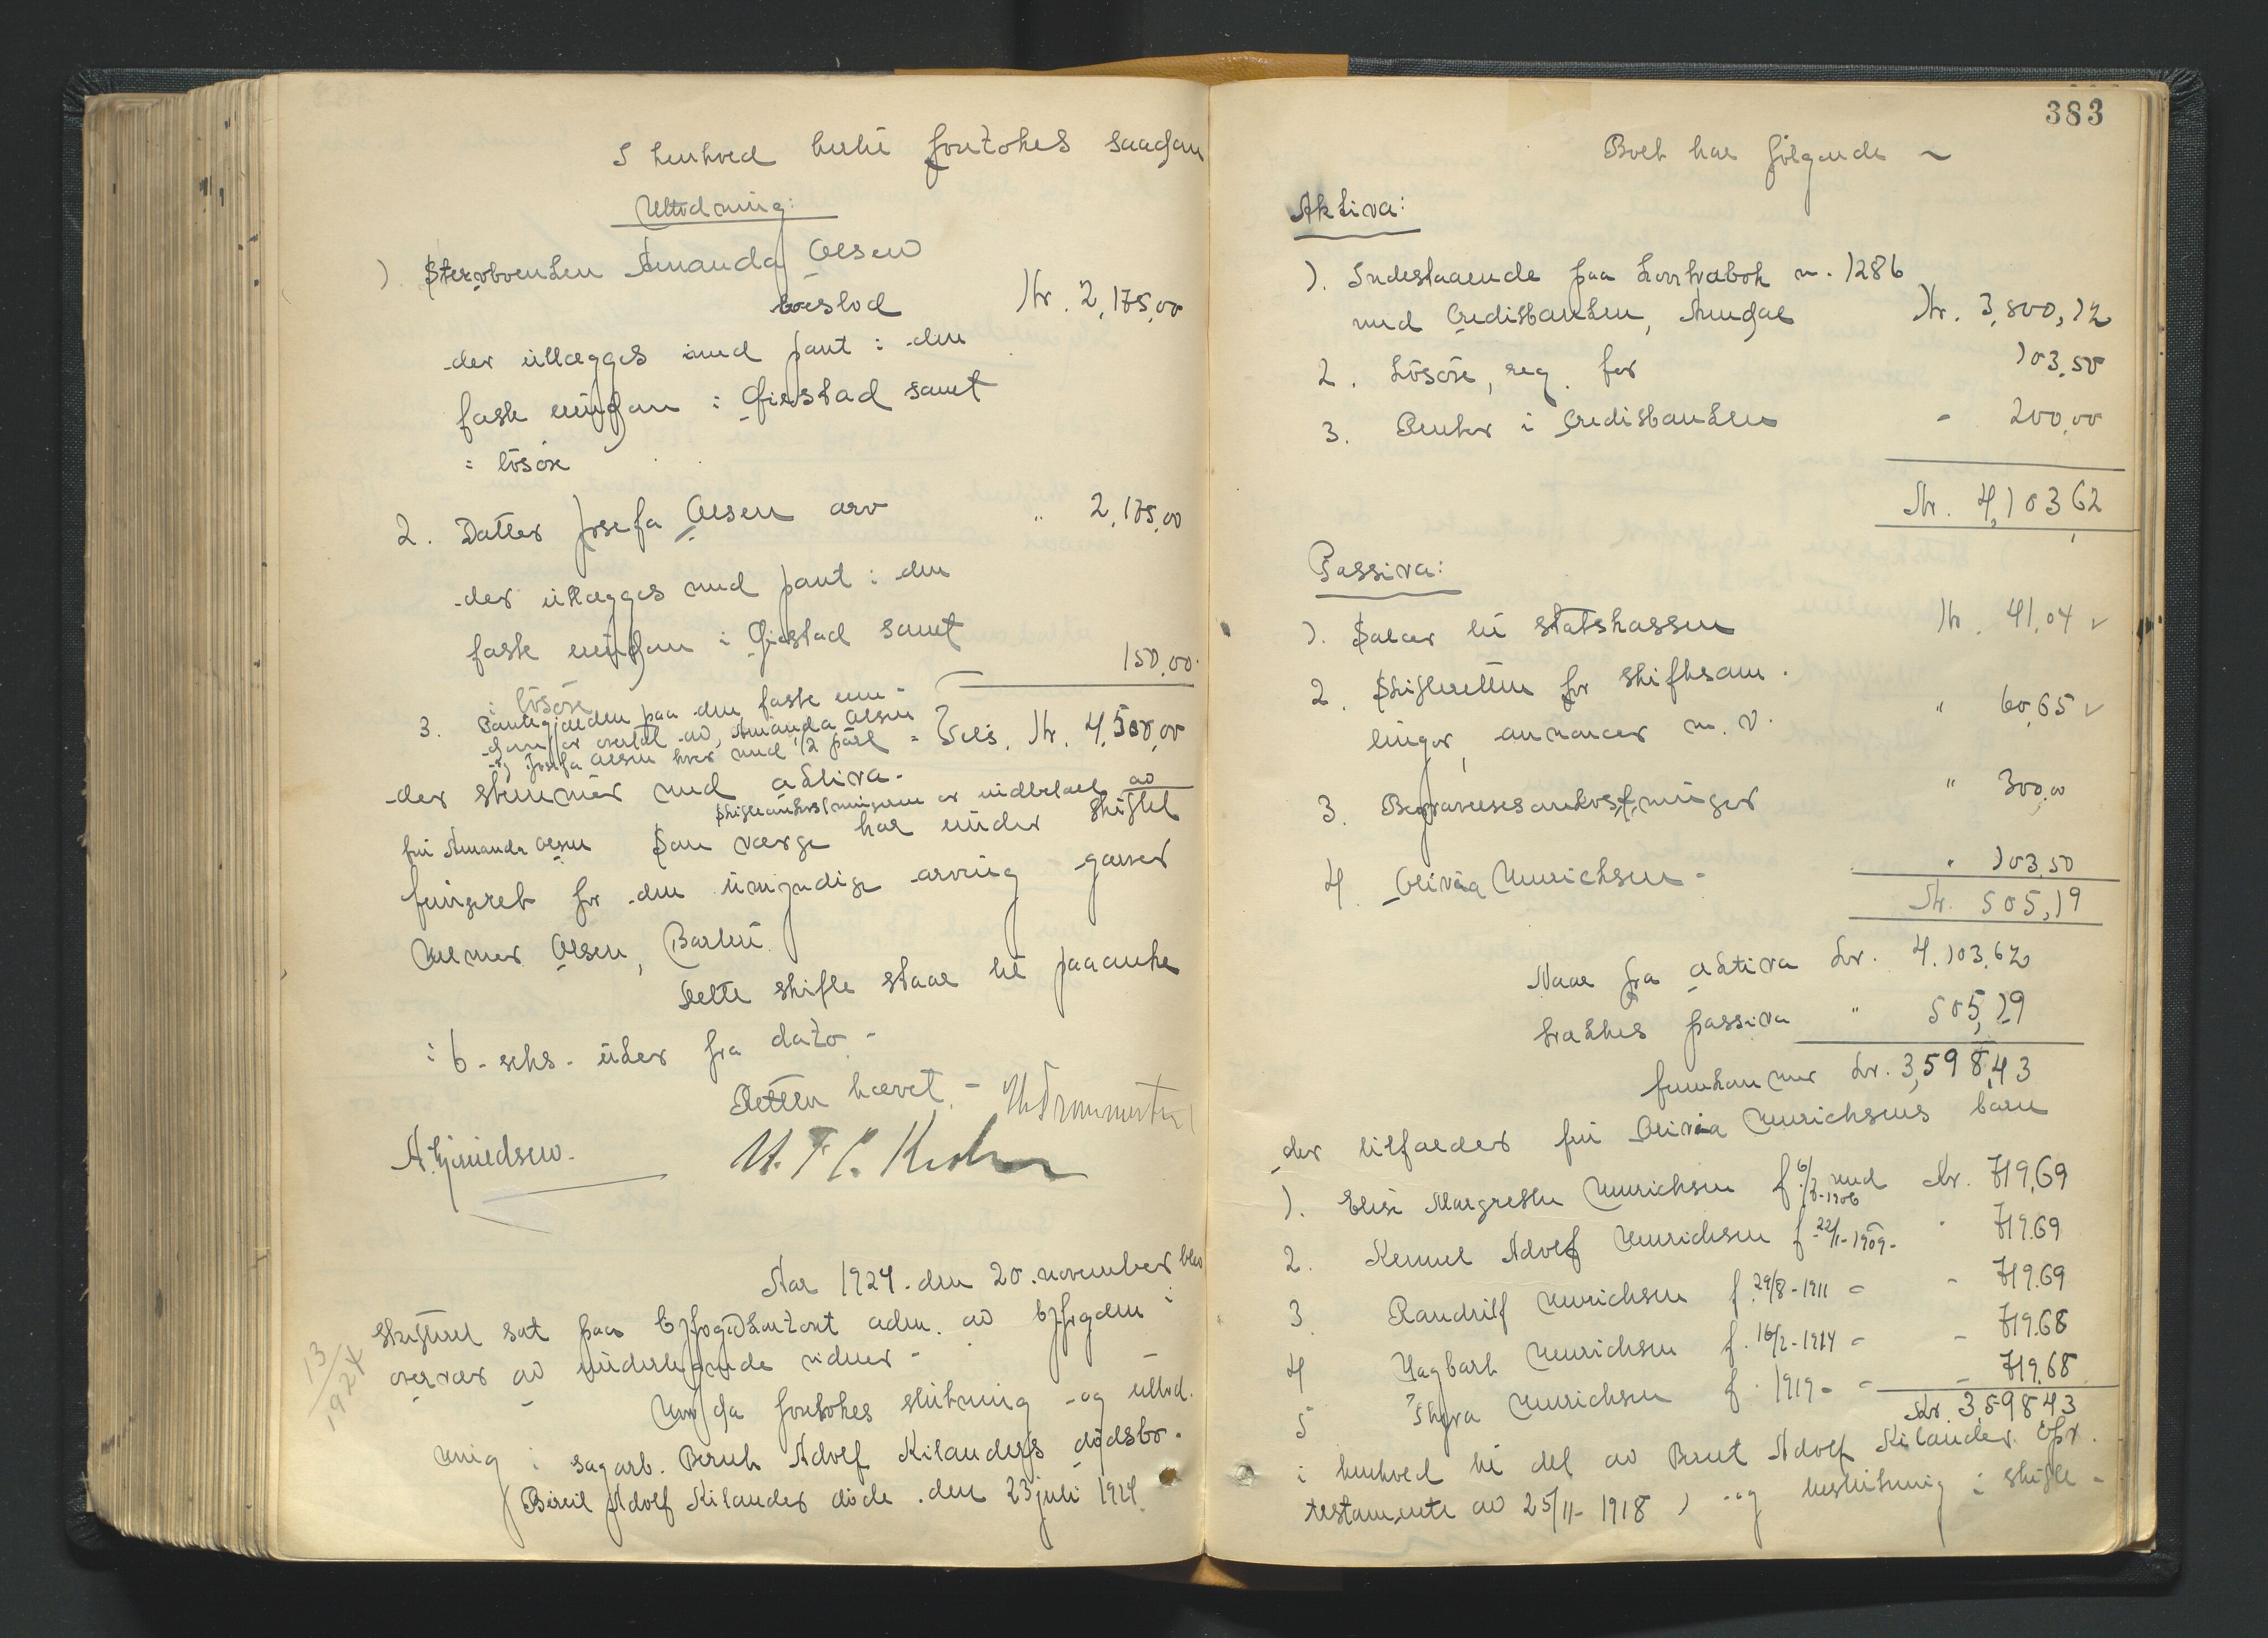 I henhold hertil foretokes saadan
Utlodning:
1. Stervboenken Amanda Olsen
boeslod Kr. 2,175,00
der utlægges med pant i den
faste eiendom i Fjerstad samt
i løsøre
2. Datter Josefa Olsen arv " 2,175,00
der utlægges med pant i den
faste eiendom i Fjerstad samt
i løsøre 150,00
3. Pantegjælden paa den faste eien-
dom er overtat av Amanda Olsen
og Josefa Olsen hver med 1/2 part = Tels. Kr. 4,500,00
der stemmer med aktiva.
Skifteomkostningerne er indbetalt av
fru Amanda Olsen Som værge har under skiftet
fungeret for den umyndige arving garver
Olsen, Barbu
Dette skifte staar til paaanke
i 6 - seks - uker fra dato -
Retten hævet. -
Aar 1924 den 20. november blev
skifteret sat paa byfogdkontoret adm. av byfogden i
overvær av undertegnede vidner -
13/1924
Hvorda foretokes slutning og utlod-
ning i sagarb. Bernt Adolf Kilanders dødsbo.
Bernt Adolf Kilander døde den 23 juli 1924.
383
Boet har følgende ~
Aktiva:
1. Indestaaende paa kontrabok n. 1286
med Creditbanken, Arendal Kr. 3,800,12
2. Løsøre, reg. for 103,50
3. Renter i Creditbanken - 200,00
Kr. 4,103,62
Passiva:
1. Salær til statskassen Kr. 41,04 ✓
2. Skifteretten for skiftesam-
linger, annoncer m. v. " 60,65 ✓
3. Begravelsesomkostninger " 300,00
4. Olivia Henrichsen - " 103,50
Kr. 505,19
Naar fra aktiva kr. 4.103,62
trækkes passiva " 505,19
fremkommer kr. 3,598,43
der tilfalder fru Olivia Henrichsens barn
1. Elise Margrethe Henrichsen f. 6/7-1906 med Kr. 719,69
2. Adolf Henrichsen f. 22/11-1909 - " 719.69
3. Randulf Henrichsen f. 29/8-1911 - - 719.69
4. Hagbart Henrichsen f. 16/2-1914 - - 719.68
5. Thyra Henrichsen f. 1919 - - - 719.68
Kr. 3,598 43
i henhold til del av Bernt Adolf Kilander opr.
testamente av 25/11-1918 ) og beslutning i skifte -